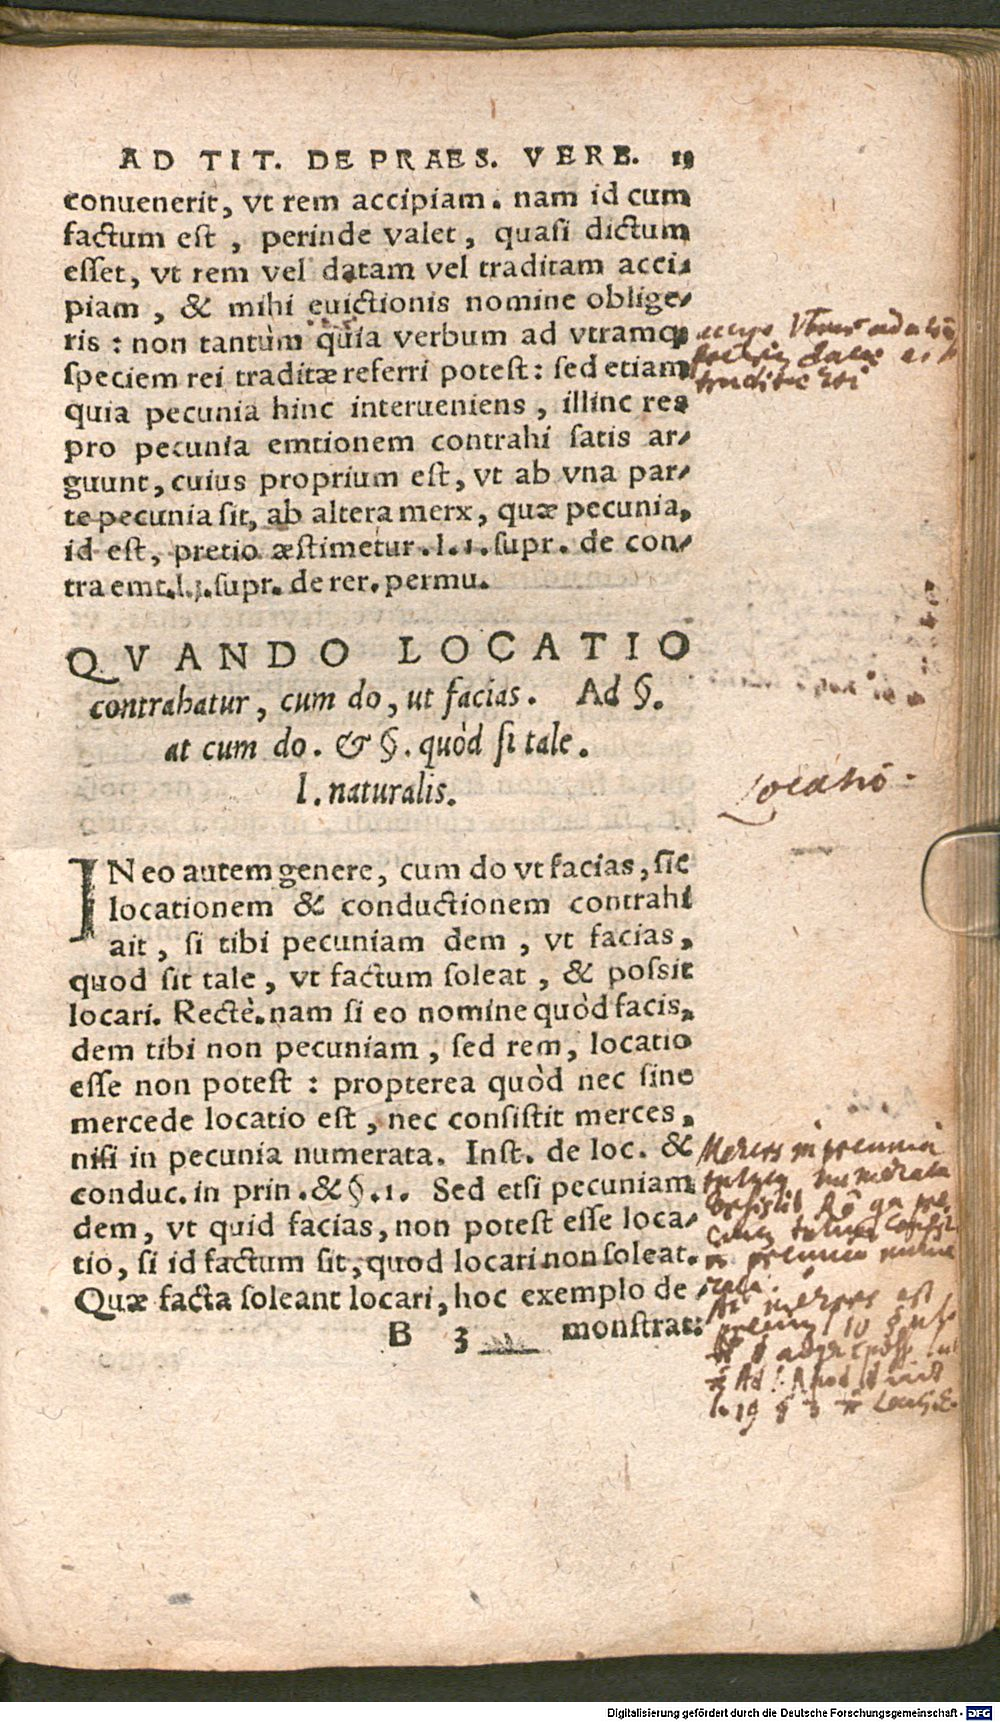 AD TIT. DE PRAES. VERB. 19
conuenerit, vt rem accipiam. nam id cum
factum est, perinde valet, quasi dictum
esset, vt rem vel datam vel traditam acci-
piam, & mihi euictionis nomine oblige-
ris: non tantùm quia verbum ad vtramq;
speciem rei traditæ referri potest: sed etiam
quia pecunia hinc interueniens, illinc res
pro pecunia emtionem contrahi satis ar-
guunt, cuius proprium est, vt ab vna par-
te pecunia sit, ab altera merx, quæ pecunia,
id est, pretio æstimetur. l. 1. supr. de con-
tra emt. l. j. supr. de rer. permu.
QVANDO LOCATIO
contrahatur, cum do, ut facias. Ad §.
at cum do. & §. quòd si tale.
l. naturalis.
Locatio
IN eo autem genere, cum do vt facias, sic
locationem & conductionem contrahi
ait, si tibi pecuniam dem, vt facias,
quod sit tale, vt factum soleat, & possit
locari. Rectè. nam si eo nomine quòd facis,
dem tibi non pecuniam, sed rem, locatio
esse non potest: propterea quòd nec sine
mercede locatio est, nec consistit merces,
nisi in pecunia numerata. Inst. de loc. &
conduc. in prin. & §. 1. Sed etsi pecuniam
dem, vt quid facias, non potest esse loca-
tio, si id factum sit, quod locari non soleat.
Quæ facta soleant locari, hoc exemplo de-
B 3 monstrat:
Merces in pecunia
numerata
Digitalisierung gefördert durch die Deutsche Forschungsgemeinschaft - DFG